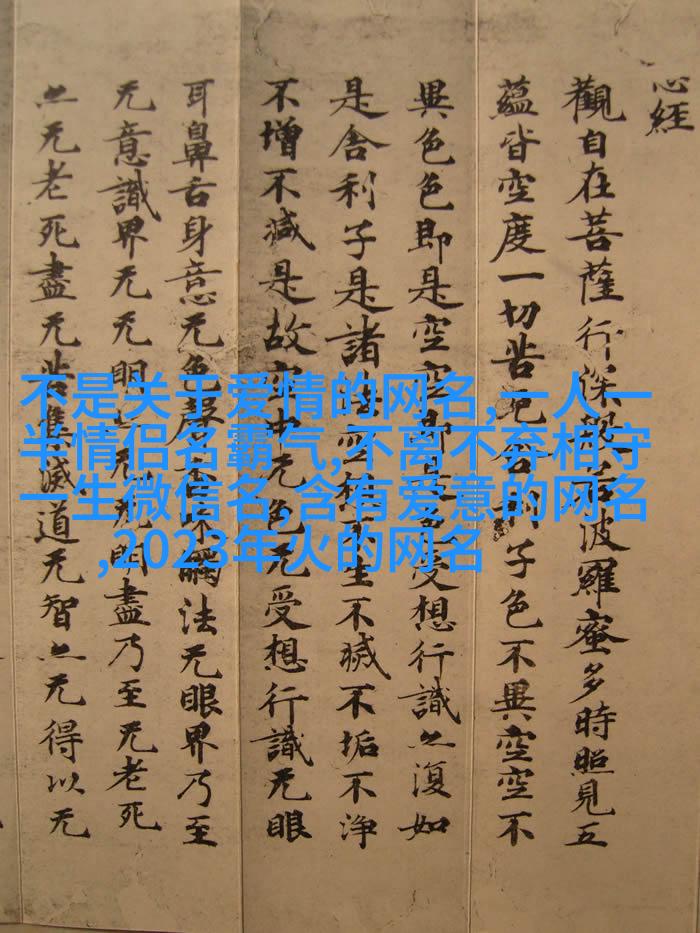 心經
觀自在菩薩行深般若波羅蜜多時照見五
蘊皆空度一切苦厄舍利子色不異空空不
異色色即是空空即是色受想行識亦復如
是舍利子是諸法空相不生不滅不垢不淨
不增不減是故空中无色无受想行識无眼
耳鼻舌身意无色聲香味觸法无眼界乃至
无意識界无无明亦无无明盡乃至无老死
亦无老死盡无苦集滅道无智亦无得以无
不是关于爱情的网名,一人一
半情侣名霸气,不离不弃相守
一生微信名,含有爱意的网名
,2023年火的网名